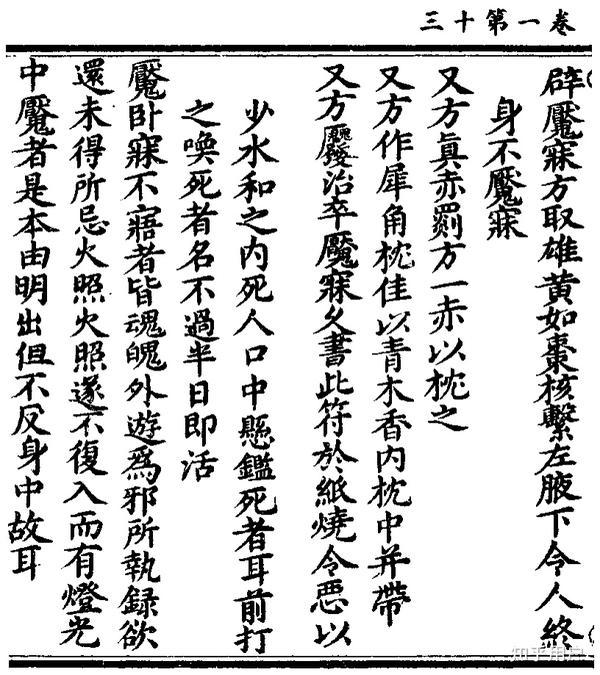 卷一第十三
辟魘寐方取雄黃如棗核繫左腋下令人終
身不魘寐
又方眞赤罽方一赤以枕之
又方作犀角枕佳以青木香内枕中并帶
又方治卒魘寐久書此符於紙燒令惡以
少水和之内死人口中懸鑑死者耳前打
之喚死者名不過半日即活
魘卧寐不寤者皆魂魄外遊爲邪所執録欲
還未得所忌火照火照遂不復入而有燈光
中魘者是本由明出但不反身中故耳
知乎用户